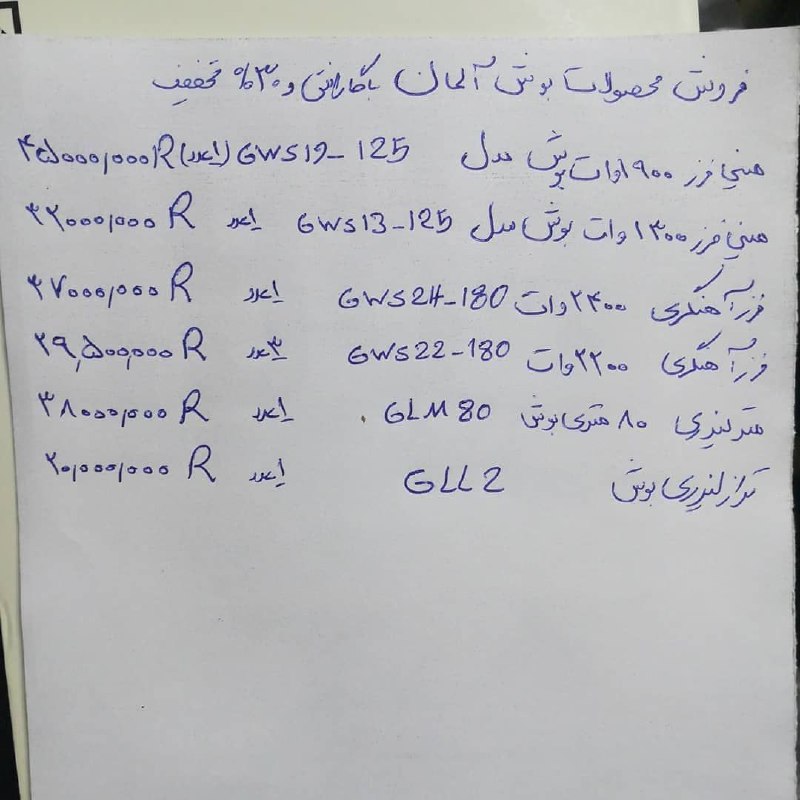 فروش محصولات بوش آلمان با گارانتی و ۳۰% تخفیف
مینی فرز ۱۹۰۰وات بوش مدل GWS19-125 (۱عدد) ۴۵۰۰۰,۰۰۰R
مینی فرز ۱۳۰۰ وات بوش مدل GWS13-125 ۱عدد ۳۲۰۰۰,۰۰۰ R
فرز آهنگری ۲۴۰۰وات GWS24-180 ۱عدد ۳۷۰۰۰,۰۰۰ R
فرز آهنگری ۲۲۰۰وات GWS22-180 ۳عدد ۲۹,۵۰۰,۰۰۰ R
متر لیزری ۸۰ متری بوش GLM 80 ۱عدد ۳۸۰۰۰,۰۰۰ R
تراز لیزری بوش GLL2 ۱عدد ۲۰,۰۰۰,۰۰۰ R